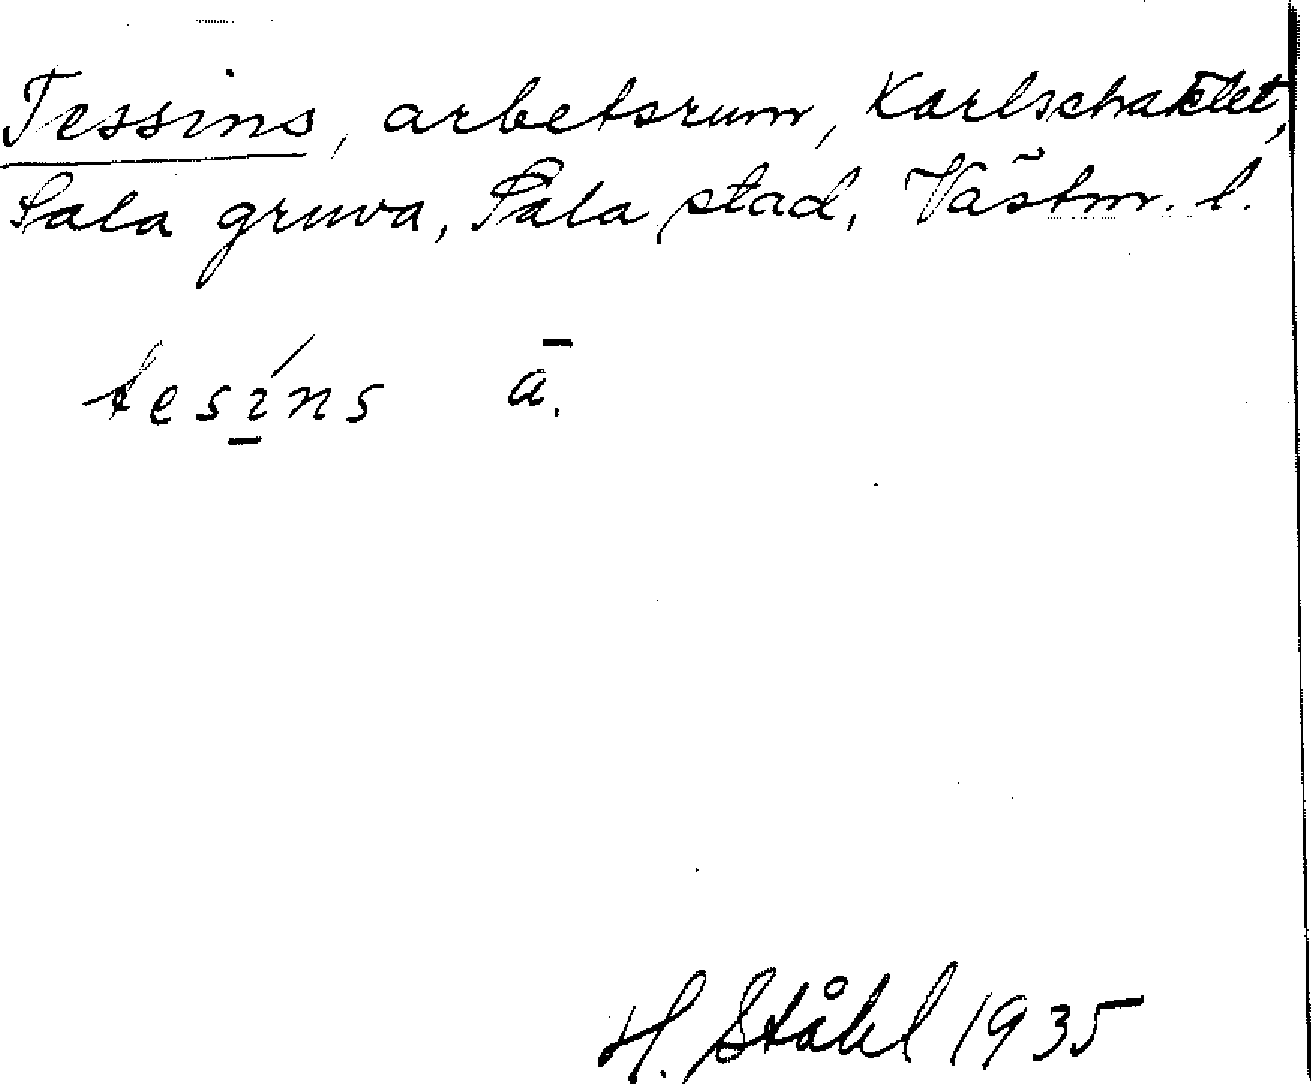 Tessins, arbetsrum, Karlschaktet,
Sala gruva, Sala stad, Västm. l.
tesí̱ns ā.
H. Ståhl 1935